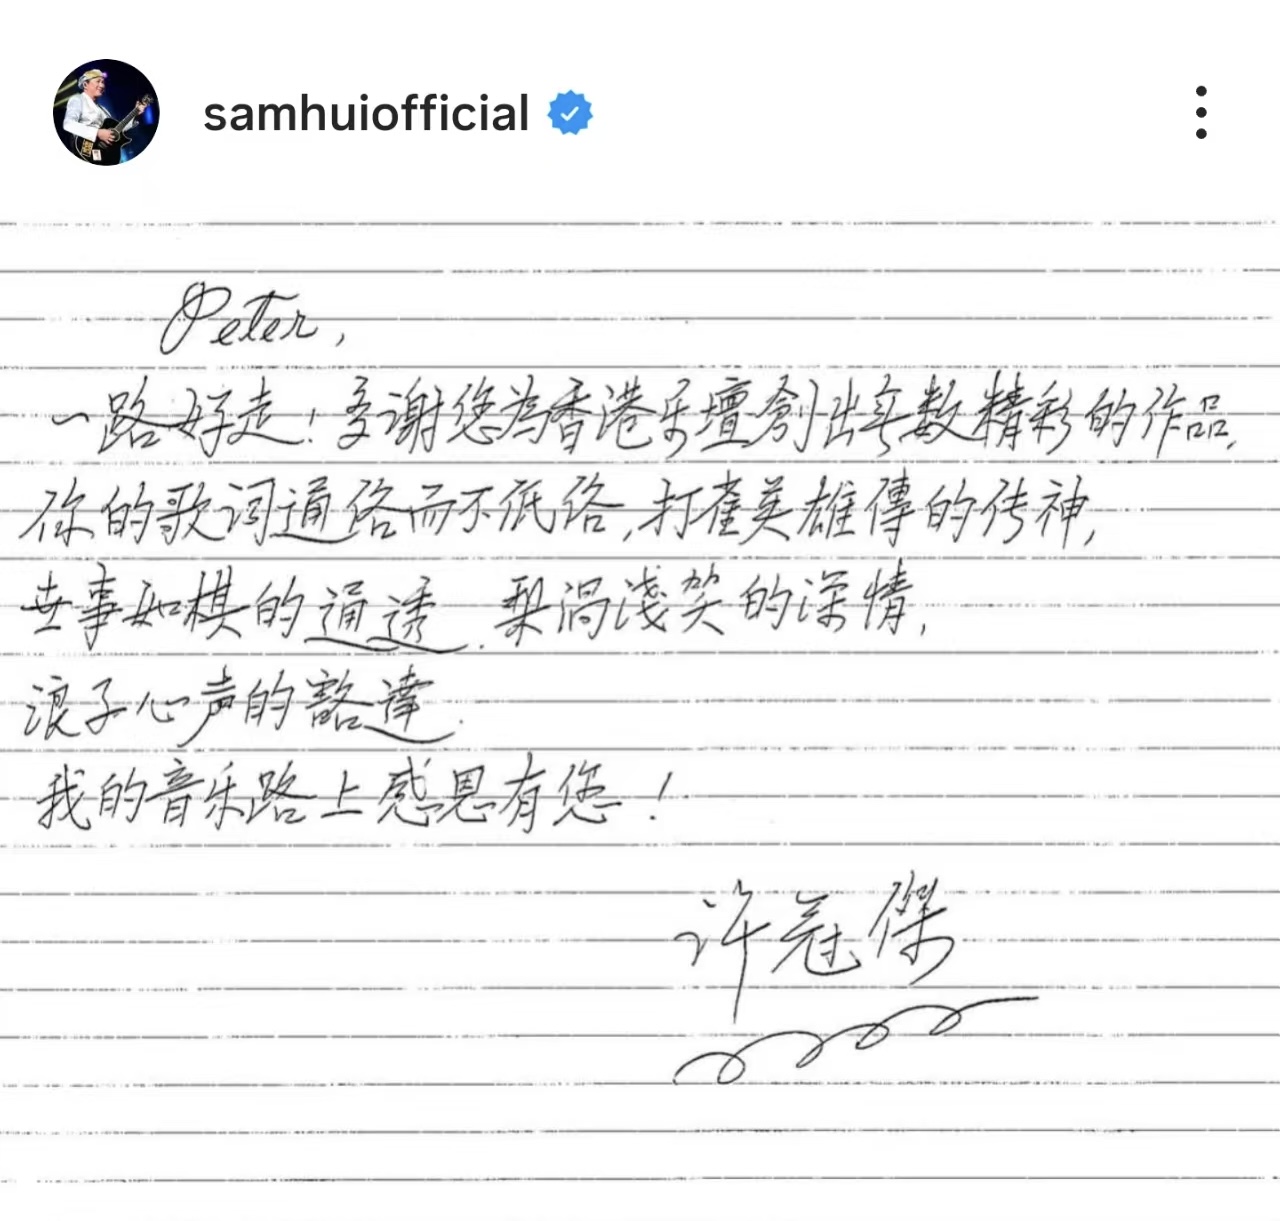 samhuiofficial
Peter,
一路好走！多謝您為香港乐壇創出无数精彩的作品,
你的歌词通俗而不低俗,打雀英雄傳的传神,
世事如棋的通透.梨渦淺笑的深情,
浪子心声的豁達.
我的音乐路上感恩有您！
许冠傑